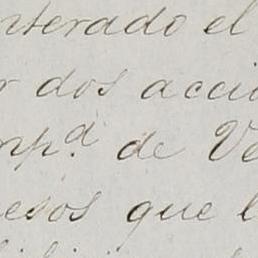 nterado el
r dos accio
mpª de Ve
esos que l